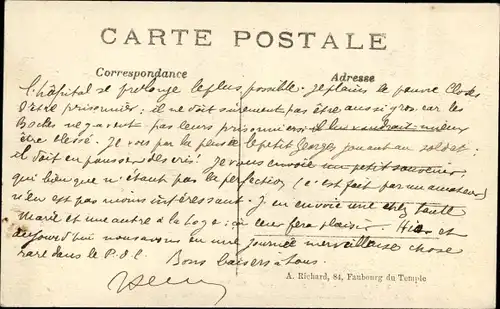 CARTE POSTALE
Correspondance
Adresse
l'hôpital se prolonge le plus possible. Je plains le pauvre
d'être prisonnier; il ne doit sûrement pas être aussi gros car les
Boches ne gavent pas leurs prisonniers il lui vaudrait mieux
être blessé. Je vois par la pensée le petit Georges jouant au soldat.
il doit en pousser des cris! Je vous envoie un petit souvenir,
qui bien que n'étant pas la perfection (c'est fait par un amateur)
n'en est pas moins intéressant. J'en envoie une chez tante
Marie et une autre à la loge; ça leur fera plaisir. Hier et
aujourd'hui nous avons eu une journée merveilleuse chose
rare dans le P.d.C. Bons baisers à tous.
A. Richard, 84, Faubourg du Temple